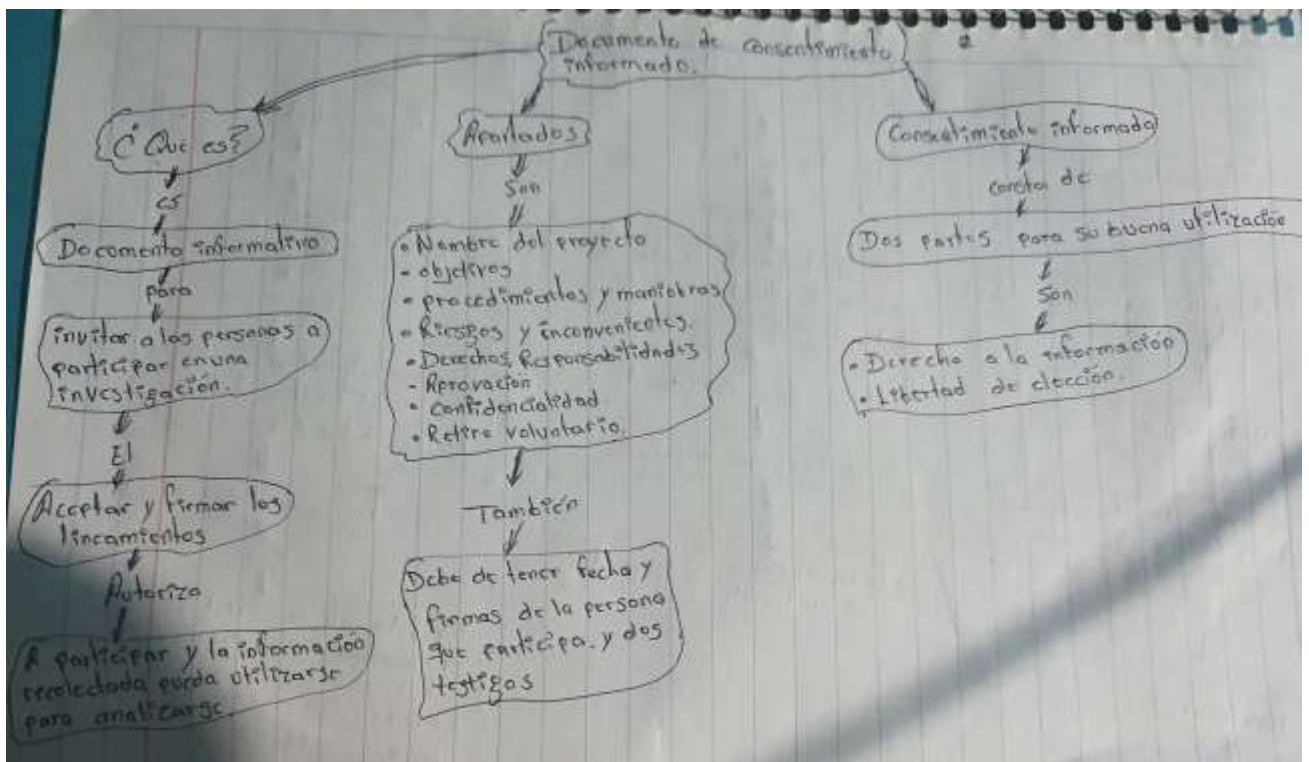 Documento de consentimiento
informado.
¿Que es?
es
Documento informativo
para
invitar a las personas a
participar en una
investigación.
El
Aceptar y firmar los
lineamientos
Autoriza
A participar y la información
recolectada pueda utilizarse
para analizarse
Apartados
Son
• Nombre del proyecto
- objetivos
• procedimientos y maniobras
• Riesgos y inconvenientes.
• Derechos, Responsabilidades
- Aprovacion
• confidencialidad
• Retiro voluntario.
También
Debe de tener fecha y
firmas de la persona
que participa, y dos
testigos
Consentimiento informado
consta de
Dos partes para su buena utilización
Son
• Derecho a la información
• Libertad de elección.